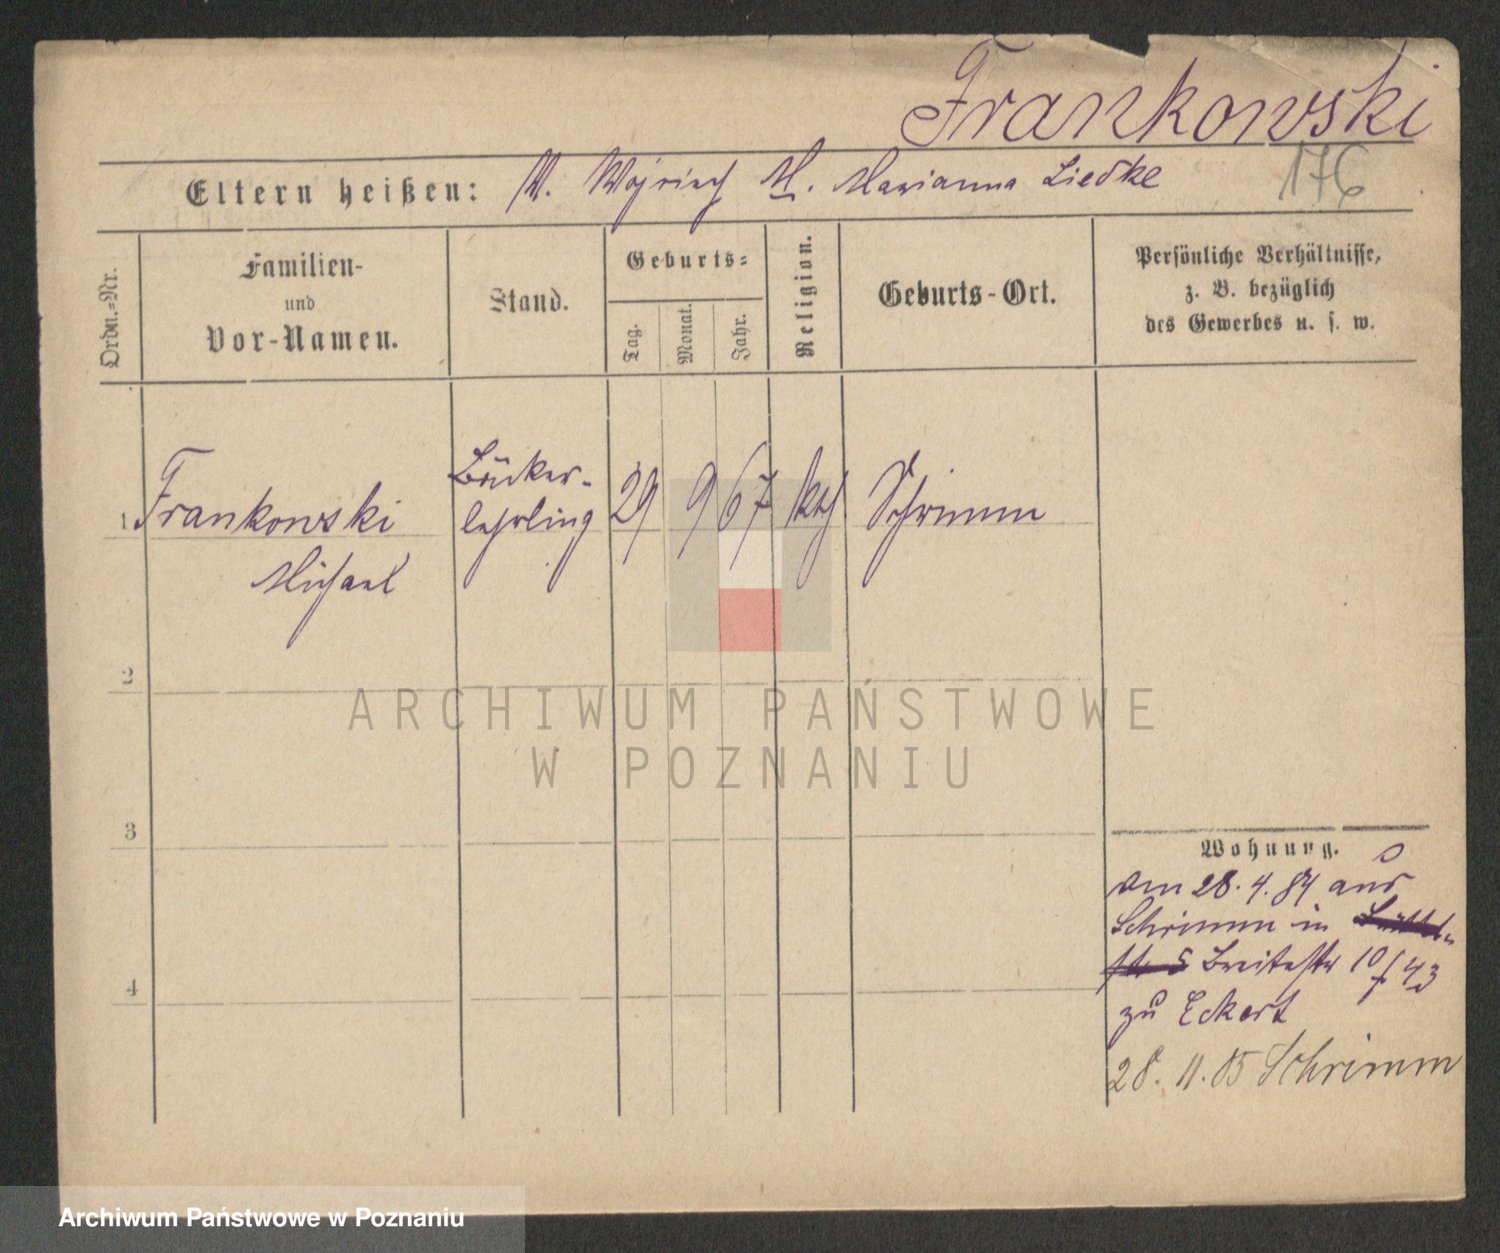 Frankowski
176
Eltern heißen: V. Wojciech M. Marianna Liedke
Ordn.-Nr.
Familien-
und
Vor-Namen.
Stand.
Geburts-
Tag.
Monat.
Jahr.
Religion.
Geburts-Ort.
Persönliche Verhältnisse,
z. B. bezüglich
des Gewerbes u. s. w.
1 Frankowski
Michael
Bäcker-
lehrling
29 9 67 kth Schrimm
2
3
4
Wohnung.
Am 28.4.84 aus
Schrimm in
Breitestr 10/43
zu Eckert
28.11.85 Schrimm
ARCHIWUM PAŃSTWOWE
W POZNANIU
Archiwum Państwowe w Poznaniu